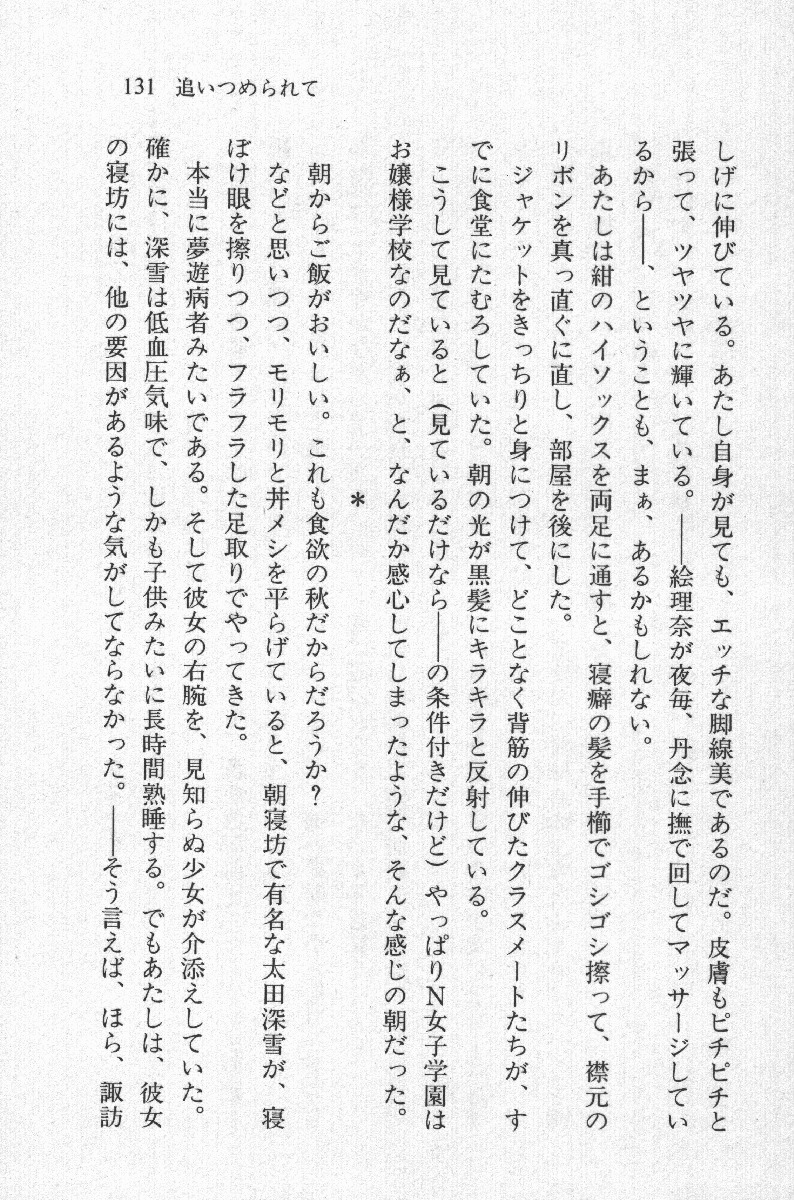 131 追いつめられて
しげに伸びている。あたし自身が見ても、エッチな脚線美であるのだ。皮膚もピチピチと
張って、ツヤツヤに輝いている。――絵理奈が夜毎、丹念に撫で回してマッサージしてい
るから――、ということも、まぁ、あるかもしれない。
あたしは紺のハイソックスを両足に通すと、寝癖の髪を手櫛でゴシゴシ擦って、襟元の
リボンを真っ直ぐに直し、部屋を後にした。
ジャケットをきっちりと身につけて、どことなく背筋の伸びたクラスメートたちが、す
でに食堂にたむろしていた。朝の光が黒髪にキラキラと反射している。
こうして見ていると（見ているだけなら――の条件付きだけど）やっぱりN女子学園は
お嬢様学校なのだなぁ、と、なんだか感心してしまったような、そんな感じの朝だった。
＊
朝からご飯がおいしい。これも食欲の秋だからだろうか？
などと思いつつ、モリモリと丼メシを平らげていると、朝寝坊で有名な太田深雪が、寝
ぼけ眼を擦りつつ、フラフラした足取りでやってきた。
本当に夢遊病者みたいである。そして彼女の右腕を、見知らぬ少女が介添えしていた。
確かに、深雪は低血圧気味で、しかも子供みたいに長時間熟睡する。でもあたしは、彼女
の寝坊には、他の要因があるような気がしてならなかった。――そう言えば、ほら、諏訪